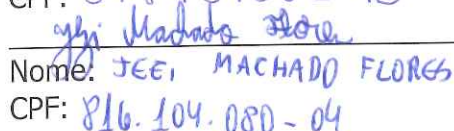 CPF:
Machado Flores
Nome: JEEI MACHADO FLORES
CPF: 816.104.080-04